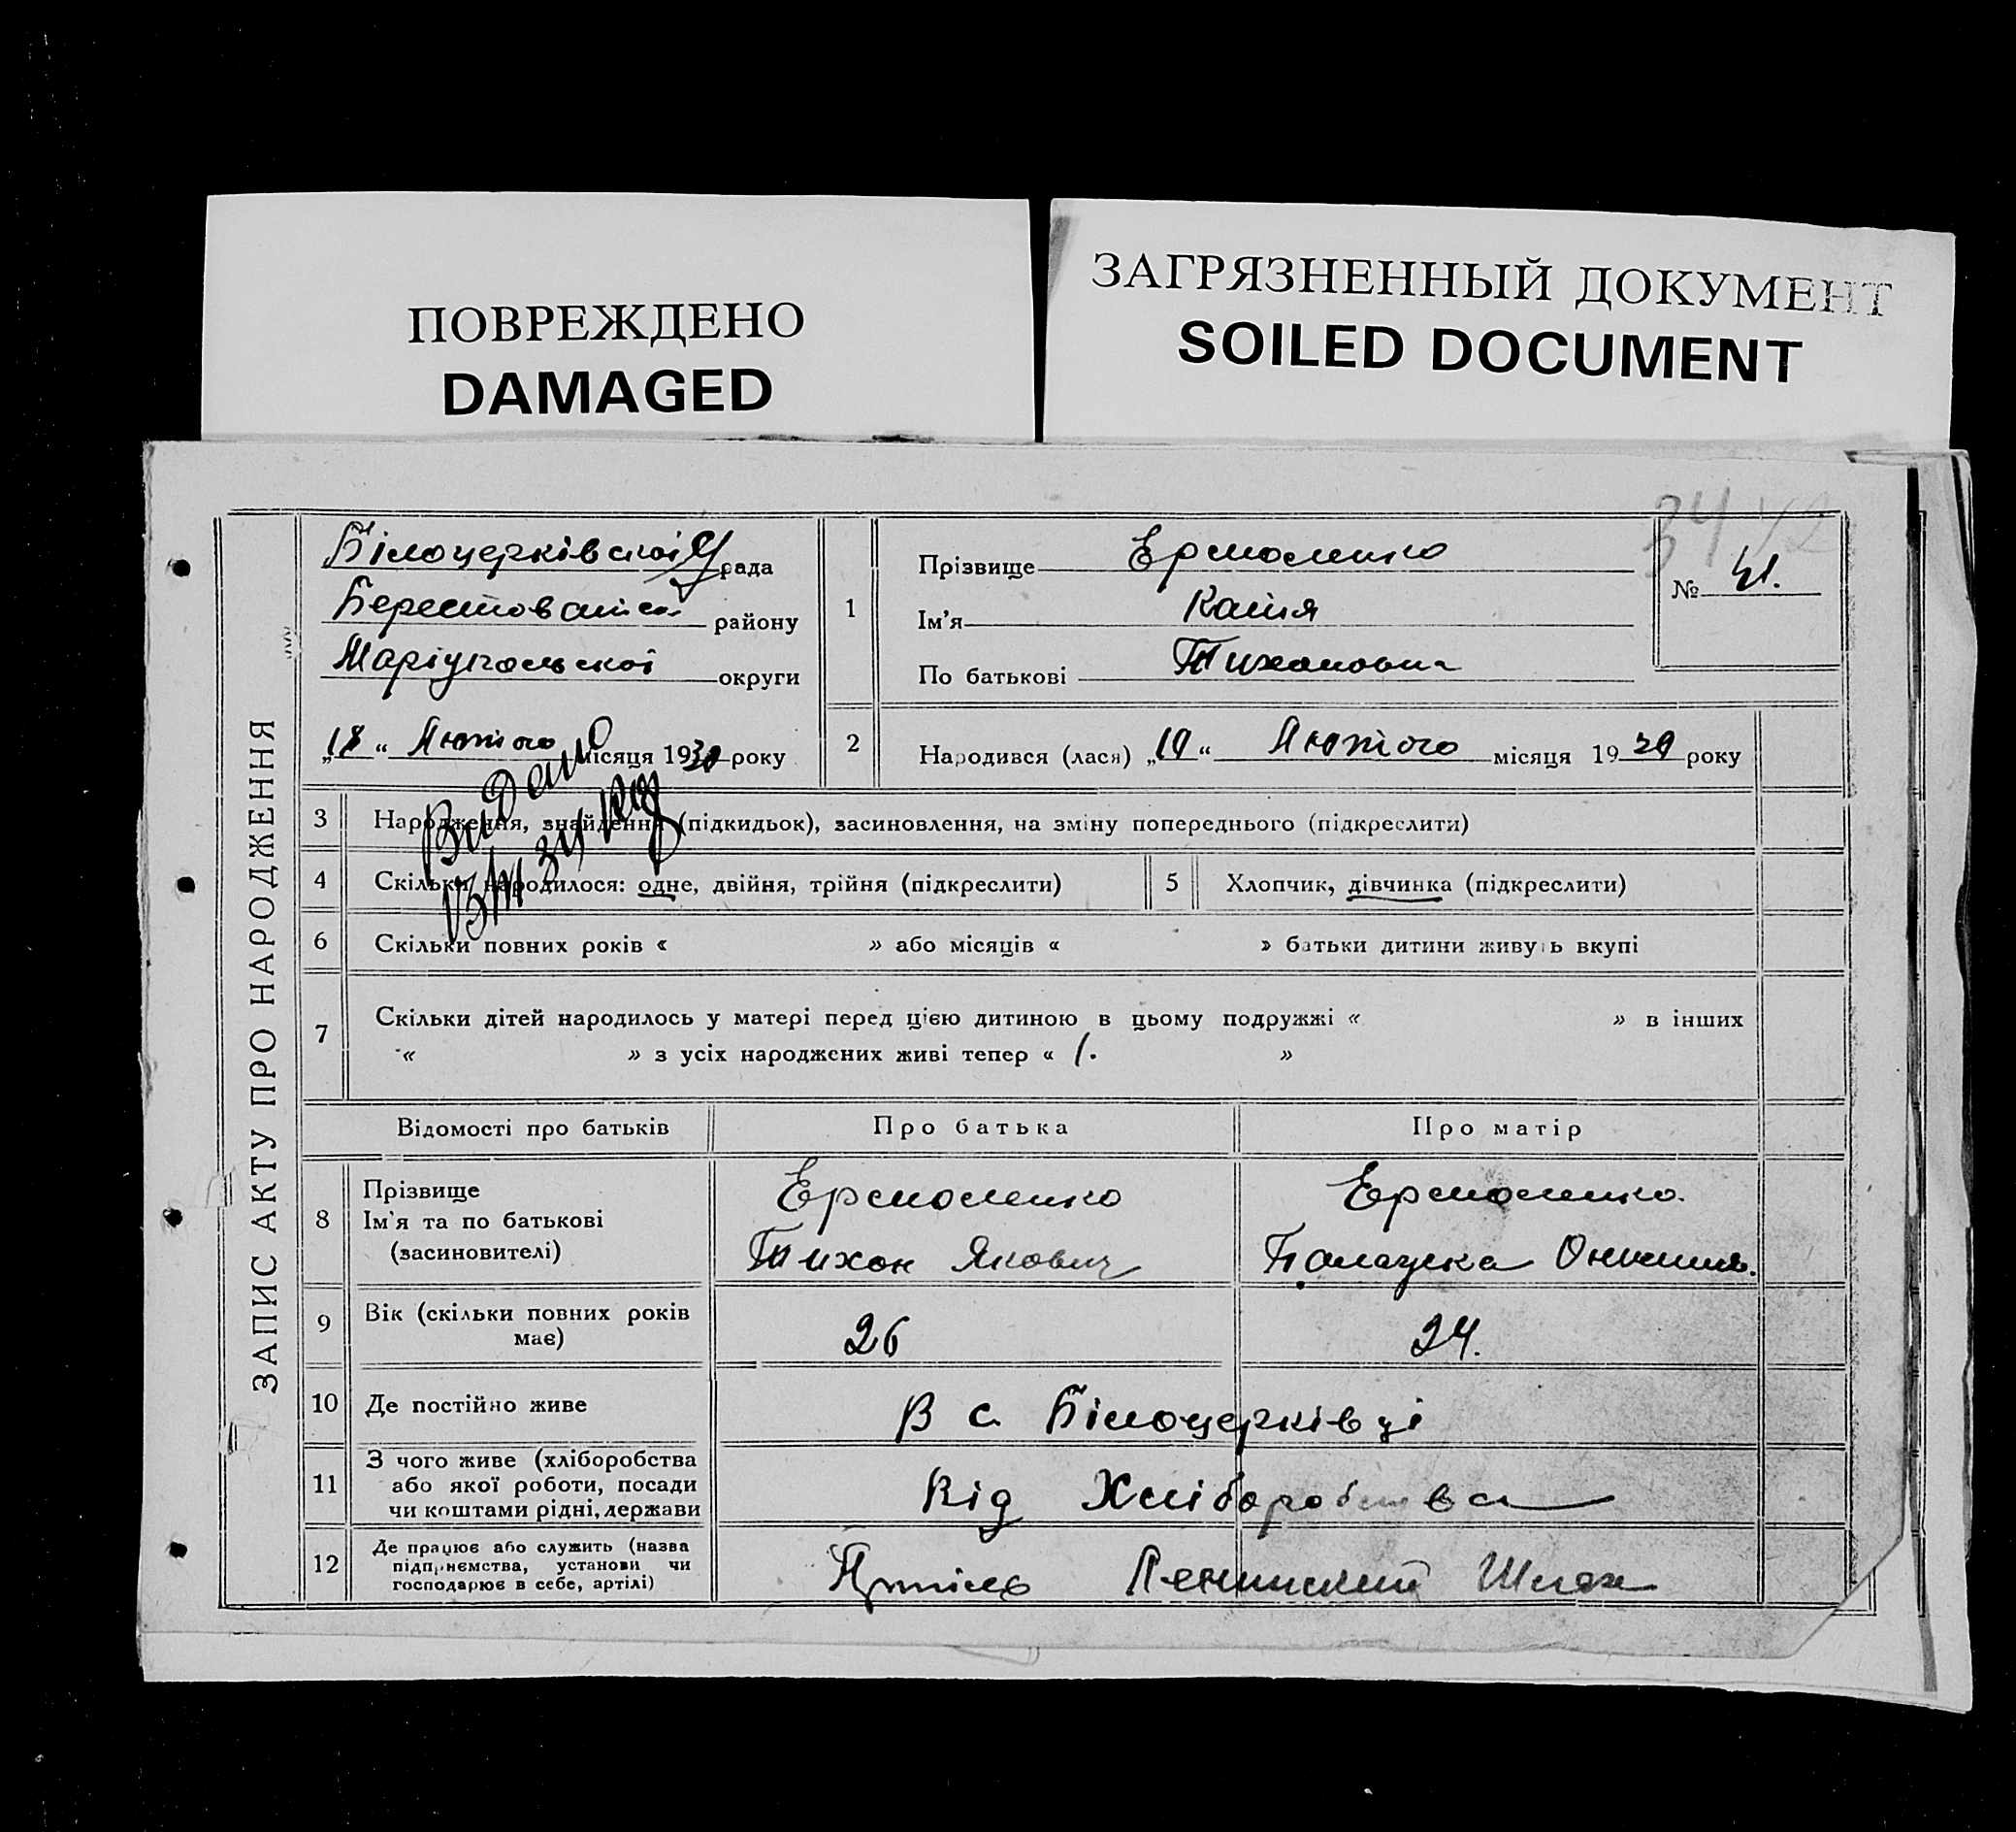 ПОВРЕЖДЕНО
DAMAGED
ЗАГРЯЗНЕННЫЙ ДОКУМЕНТ
SOILED DOCUMENT
ЗАПИС АКТУ ПРО НАРОДЖЕННЯ
Білоцерківської рада
району
Маріупольской округи
„18“ Лютого місяця 1930 року
Видано
1 Прізвище Ермоленко
Ім’я Катя
По батькові Тихоновна
№ 41.
2 Народився (лася) „10“ Лютого місяця 19 року
3 Народження, знайдення (підкидьок), засиновлення, на зміну попереднього (підкреслити)
4 Скільки народилося: одне, двійня, трійня (підкреслити)
5 Хлопчик, дівчинка (підкреслити)
6 Скільки повних років « » або місяців « » батьки дитини живуть вкупі
7 Скільки дітей народилось у матері перед цією дитиною в цьому подружжі « » в інших
« » з усіх народжених живі тепер « 1. »
Відомості про батьків Про батька Про матір
8 Прізвище
Ім’я та по батькові
(засиновителі)
Ермоленко
Тихон Якович
Ермоленко
Палажка
9 Вік (скільки повних років
має)
26 24.
10 Де постійно живе В с Білоцерківці
11 З чого живе (хліборобства
або якої роботи, посади
чи коштами рідні, держави
Від Хліборобства
12 Де працює або служить (назва
підприємства, установи чи
господарює в себе, артілі)
Ленинский Шлях